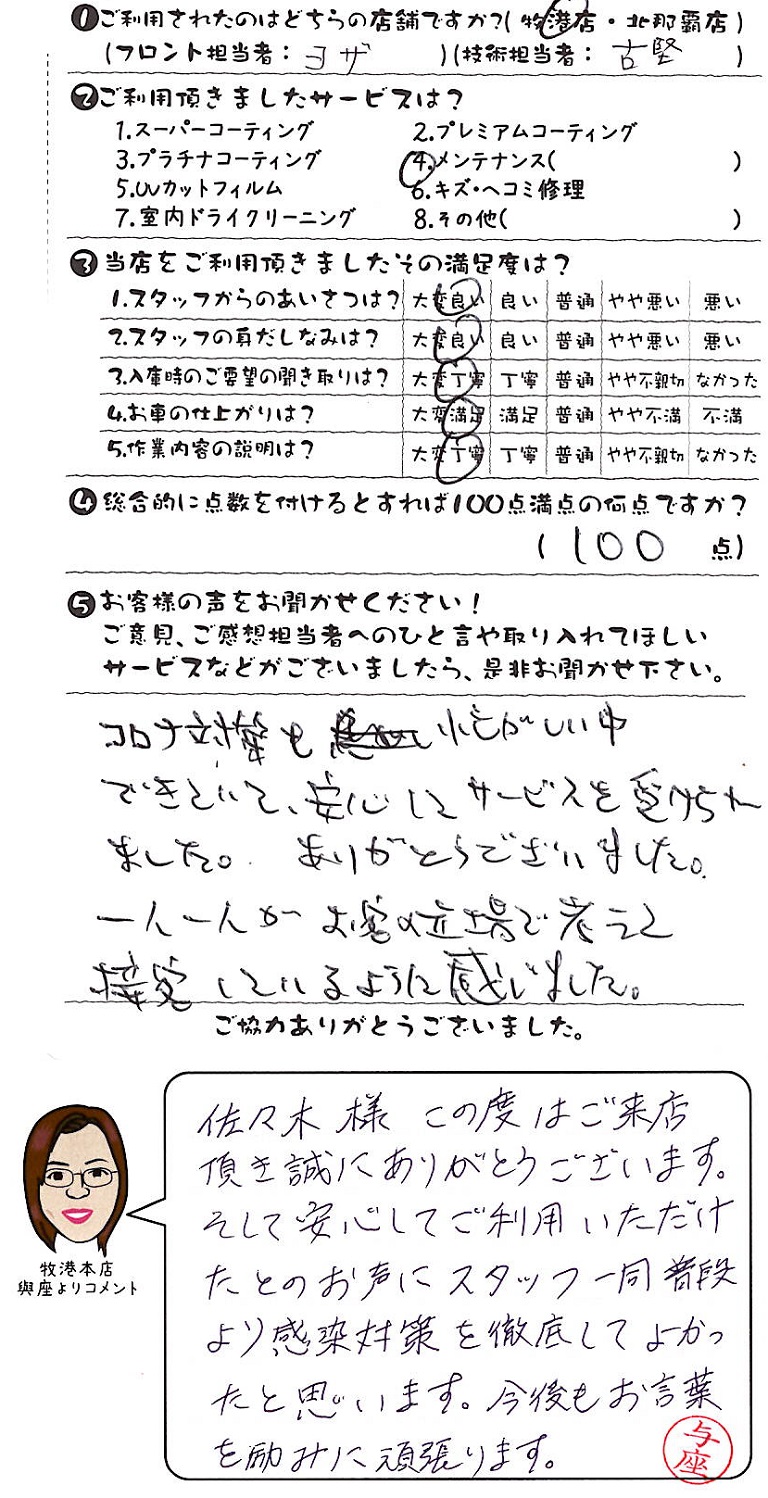 ❶ご利用されたのはどちらの店舗ですか?(牧港店・北那覇店)
(フロント担当者:ヨザ)(技術担当者:古堅)
❷ご利用頂きましたサービスは?
1.スーパーコーティング 2.プレミアムコーティング
3.プラチナコーティング 4.メンテナンス( )
5.UVカットフィルム 6.キズ・ヘコミ修理
7.室内ドライクリーニング 8.その他( )
❸当店をご利用頂きましたその満足度は?
1.スタッフからのあいさつは? 大変良い 良い 普通 やや悪い 悪い
2.スタッフの身だしなみは? 大変良い 良い 普通 やや悪い 悪い
3.入庫時のご要望の聞き取りは? 大変丁寧 丁寧 普通 やや不親切 なかった
4.お車の仕上がりは? 大変満足 満足 普通 やや不満 不満
5.作業内容の説明は? 大変丁寧 丁寧 普通 やや不親切 なかった
❹総合的に点数を付けるとすれば100点満点の何点ですか?
(100点)
❺お客様の声をお聞かせください!
ご意見、ご感想担当者へのひと言や取り入れてほしい
サービスなどがございましたら、是非お聞かせ下さい。
コロナ対策も 忙がしい中
できていて、安心してサービスを受けられ
ました。ありがとうございました。
一人一人がお客の立場で考えて
接客しているように感じました。
ご協力ありがとうございました。
佐々木様 この度はご来店
頂き誠にありがとうございます。
そして安心してご利用いただけ
たとのお声にスタッフ一同普段
より感染対策を徹底してよかっ
たと思います。今後もお言葉
を励みに頑張ります。
与座
牧港本店
與座よりコメント